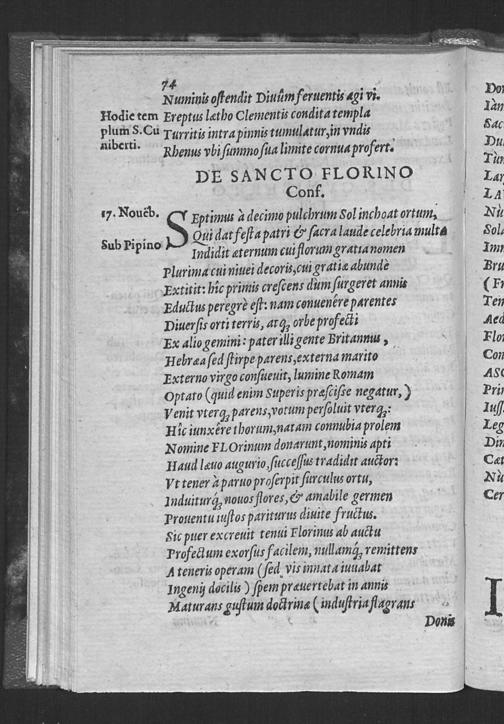 74
Numinis ostendit Diuûm feruentis agi vi.
Hodie tem
plum S. Cu
niberti.
Ereptus latho Clementis condita templa
Turritis intra pinnis tumulatur, in vndis
Rhenus vbi summo sua limite cornua profert.
DE SANCTO FLORINO
Conf.
17. Nouēb.
Sub Pipino
SEptimus à decimo pulchrum Sol inchoat ortum,
Qui dat festa patri & sacra laude celebria multa
Indidit æternum cui florum gratia nomen
Plurima cui niuei decoris, cui gratiæ abundè
Extitit: hîc primis crescens dum surgeret annis
Eductus peregrè est: nam conuenêre parentes
Diuersis orti terris, atq́; orbe profecti
Ex alio gemini: pater illi gente Britannus,
Hebræa sed stirpe parens, externa marito
Externo virgo consueuit, lumine Romam
Optato (quid enim Superis præscisse negatur,)
Venit vterq; parens, votum persoluit vterq;:
Hîc iunxêre thorum, natam connubia prolem
Nomine FLOrinum donarunt, nominis apti
Haud læuo augurio, successus tradidit auctor:
Vt tener à paruo proserpit surculus ortu,
Induiturq́; nouos flores, & amabile germen
Prouentu iustos pariturus diuite fructus.
Sic puer excreuit tenui Florinus ab auctu
Profectum exorsus facilem, nullamq́; remittens
A teneris operam (sed vis innata iuuabat
Ingenij docilis) spem præuertebat in annis
Maturans gustum doctrinæ (industria flagrans
Donis